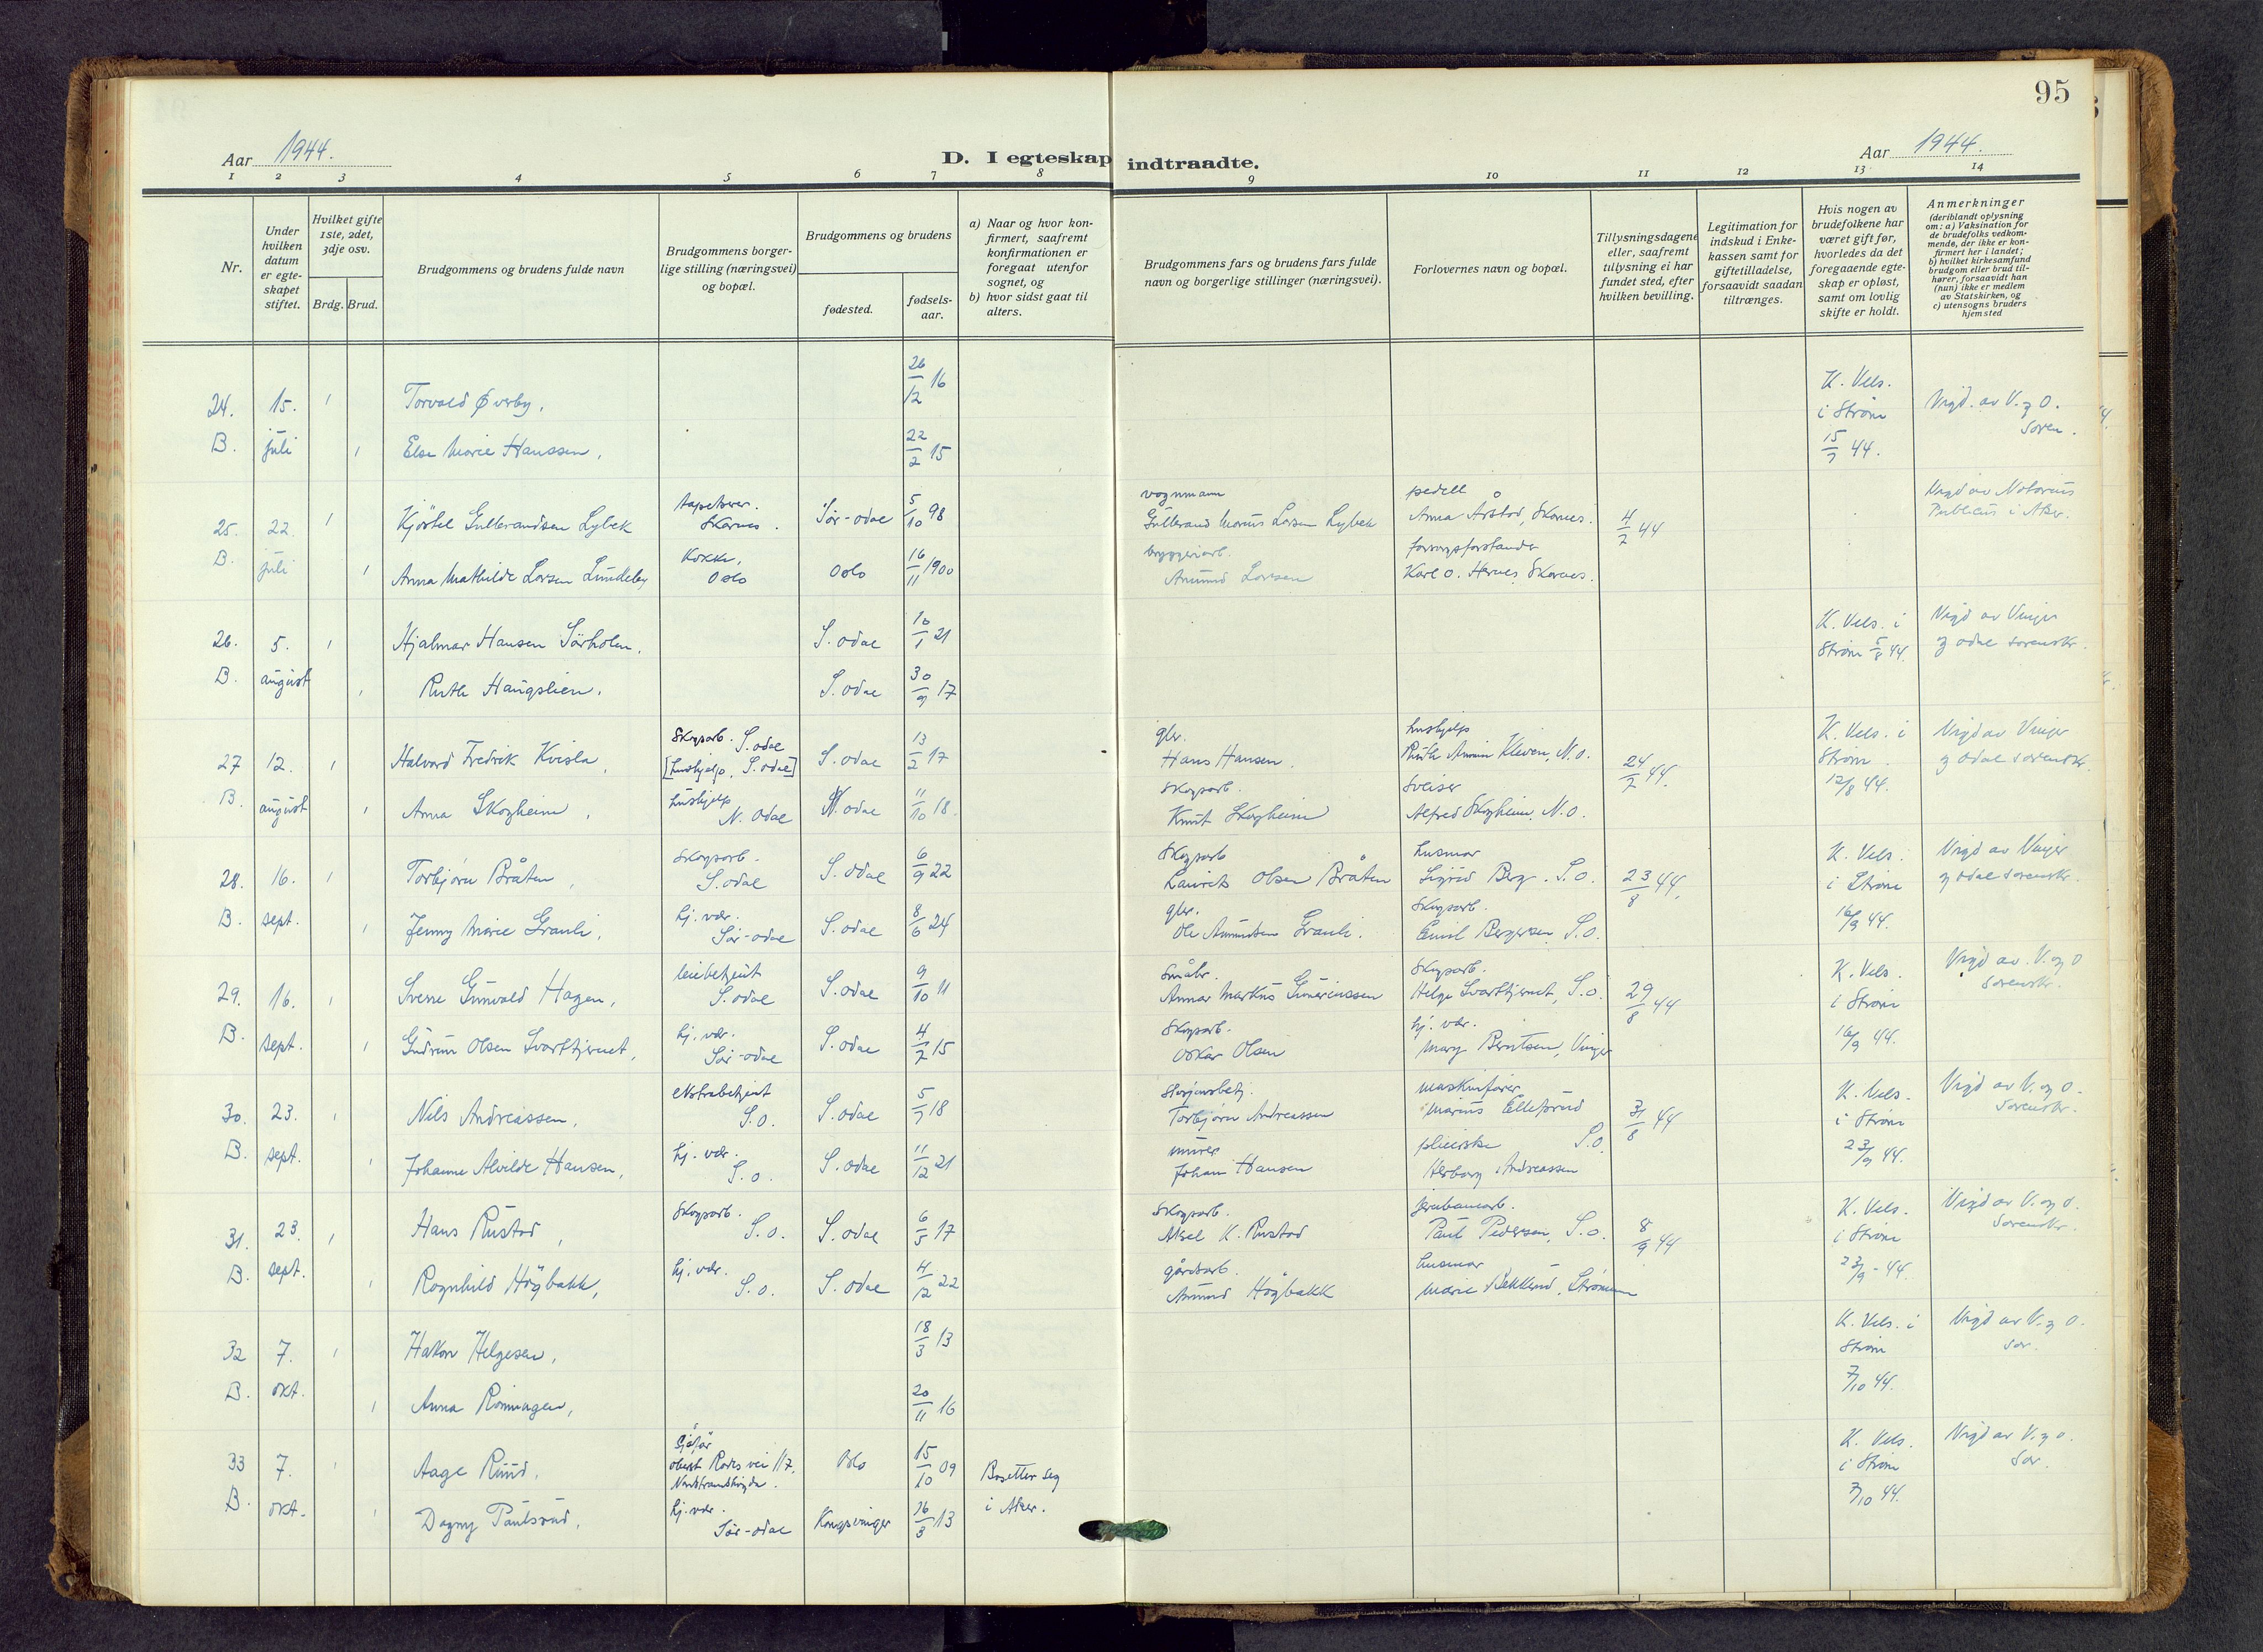 95
Aar 1944.
D. I egteskap indtraadte.
Aar 1944.
1 2 3 4 5 6 7 8 9 10 11 12 13 14
Nr.
Under hvilken datum er egteskapet stiftet.
Hvilket gifte 1ste, 2det, 3dje osv.
Brdg. Brud.
Brudgommens og brudens fulde navn
Brudgommens borgerlige stilling (næringsvei) og bopæl.
Brudgommens og brudens
fødested.
fødselsaar.
a) Naar og hvor konfirmert, saafremt konfirmationen er foregaat utenfor sognet, og
b) hvor sidst gaat til alters.
Brudgommens fars og brudens fars fulde navn og borgerlige stillinger (næringsvei).
Forlovernes navn og bopæl.
Tillysningsdagene eller, saafremt tillysning ei har fundet sted, efter hvilken bevilling.
Legitimation for indskud i Enkekassen samt for giftetilladelse, forsaavidt saadan tiltrænges.
Hvis nogen av brudefolkene har været gift før, hvorledes da det foregaaende egteskap er opløst, samt om lovlig skifte er holdt.
Anmerkninger
(deriblandt oplysning om: a) Vaksination for de brudefolks vedkommende, der ikke er konfirmert her i landet; b) hvilket kirkesamfund brudgom eller brud tilhører, forsaavidt han (hun) ikke er medlem av Statskirken, og c) utensogns bruders hjemsted
24. 15. 1 Torvald Øverby, 26/12 16 K. Vels. i Strøm 15/7 44. Vigd. av V. og O. soren.
B. juli 1 Else Marie Hanssen, 22/2 15
25. 22. 1 Kjøstel Gulbrandsen Lybek tapetserer. Skarnes. Sør-odal 5/10 98 vognmann Gulbrand Marius Larsen Lybek pedell Anna Årstad, Skarnes. 4/7 44 Vigd av Notarius Publicus i Aker.
B. juli 1 Anna Mathilde Larsen Lundeby Kokke, Oslo Oslo 16/11 1900 bryggeriarb. Amund Larsen forsorgsforstander Karl O. Hernes Skarnes.
26. 5. 1 Hjalmar Hansen Sørholen. S. odal 10/1 21 K. Vels. i Strøm 5/8 44. Vigd av Vinger og odal sorenskr.
B. august 1 Ruth Haugslien. S. odal 30/9 17
27 12. 1 Halvard Fredrik Kvisla, Skogsarb. S. odal S. odal 13/2 17 gbr. Hans Hansen. hushjelp Ruth Kleven, N.o. 24/7 44. K. Vels. i Strøm. 12/8 44. Vigd av Vinger og odal sorenskr.
[hushjelp, S. odal]
B. august 1 Anna Skogheim, hushjelp N. odal N. odal 11/10 18. Skogsarb. Knut Skogheim Sveiser Alfred Skogheim, N.o.
28. 16. 1 Torbjørn Bråten, Skogsarb. S. odal S. odal 6/9 22 Skogsarb Laurits Olsen Bråten husmor Sigrid Berg. S.o. 23/8 44. K. Vels. i Strøm 16/9 44. Vigd av Vinger og odal sorenskr.
B. sept. 1 Jenny Marie Granli, hj. vær. Sør-odal S. odal 8/6 24 gbr. Ole Amundsen Granli. Skogsarb. Emil Bergersen S.o.
29. 16. 1 Sverre Gunvald Hagen, leiebetjent S. odal S. odal 9/10 11 Småbr. Annar Markus Skogsarb. Helge Svarttjernet, S.o. 29/8 44 K. Vels. i Strøm 16/9 44. Vigd av. V. og O sorenskr.
B. sept. 1 Gudrun Olsen Svarttjernet, hj. vær. Sør-odal S. odal 4/7 15 Skogsarb. Oskar Olsen hj. vær. Mary Berntsen, Vinger
30. 23. 1 Nils Andreassen, ekstrabetjent S.o. S. odal 5/7 18 stasjonsbetj. Torbjørn Andreassen maskinfører Marius Ellefsrud S.o. 31/8 44 K. Vels. i Strøm 23/9 44. Vigd av V. og O. sorenskr.
B. sept. 1 Johanne Alvilde Hansen, hj. vær. S.o. S. odal 11/12 21 murer Johan Hansen pleierske Herborg Andreassen
31. 23. 1 Hans Rustad, Skogsarb. S.o. S. odal 6/5 17 Skogsarb. Aksel K. Rustad jernbanearb. Paul Pedersen, S.o. 8/9 44 K. Vels. i Strøm 23/9 - 44. Vigd av V. og O. sorenskr.
B. sept. 1 Ragnhild Høgbakk, hj. vær. S.o. S. odal 4/12 22 gårdsarb. Amund Høgbakk husmor Marie Bekklund, Strømmen
32 7. 1 Hakon Helgesen, 18/3 13 K. Vels. i Strøm 7/10 44. Vigd av V. og O. sor.
B. okt. 1 Anna Rønningen, 20/11 16
33 7. 1 Aage Ruud, Sjåfør oberst Rodes vei 117, Nordstrandhøgda. Oslo 15/10 09 Bosetter seg i Aker. K. Vels. i Strøm 7/10 44. Vigd av V. og O. Sor.
B. okt. 1 Dagny Paulsrud, hj. vær. Sør-odal Kongsvinger 16/3 13